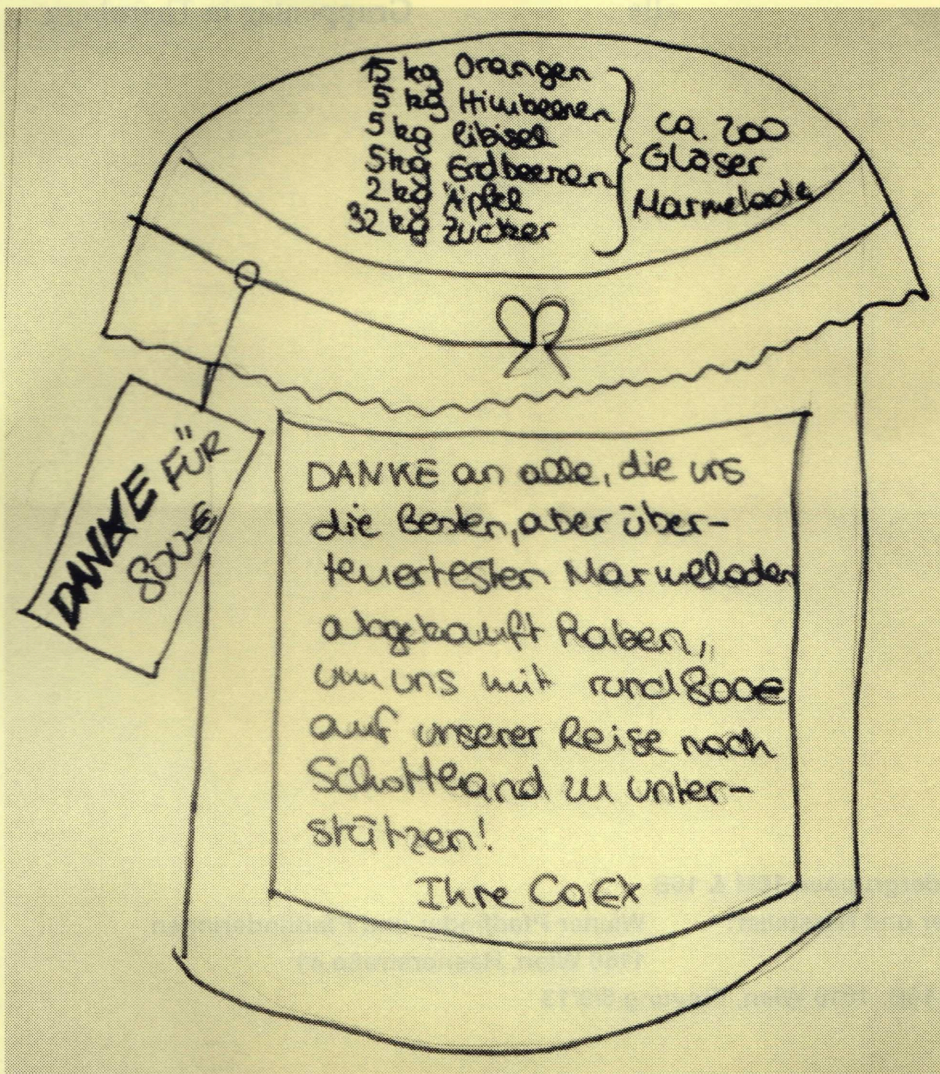 15 kg Orangen
5 kg Himbeeren
5 kg Ribisel
5kg Erdbeeren
2 kg Äpfel
32 kg Zucker
ca. 200
Gläser
Marmelade
DANKE FÜR
800€
DANKE an alle, die uns
die Besten, aber über-
teuertesten Marmeladen
abgekauft haben,
um uns mit rund 800€
auf unserer Reise nach
Schottland zu unter-
stützen!
Ihre CaEx